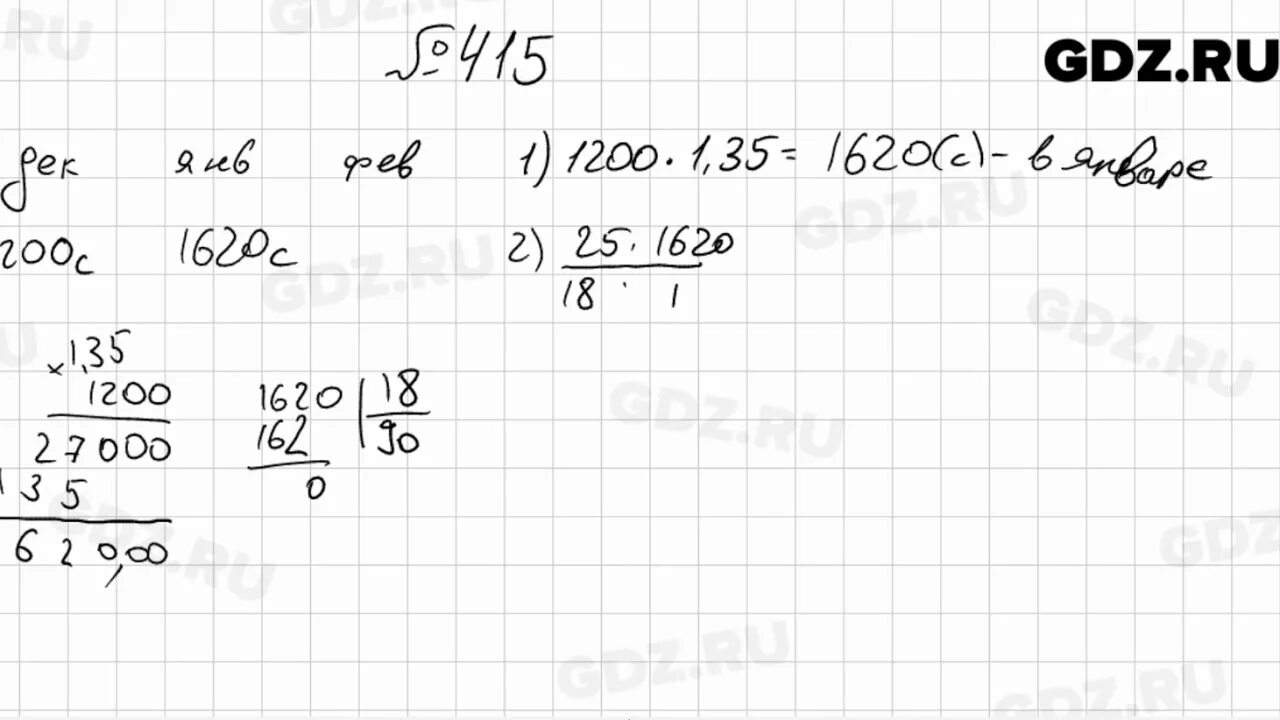 №415
GDZ.RU
дек янв фев 1) 1200 · 1,35 = 1620(с) - в январе
200с 1620с 2) 25 · 1620
18 · 1
× 1,35
1200
27000
135
620,00
1620 | 18
162 | 90
0
GDZ.RU
GDZ.RU
GDZ.RU
GDZ.RU
GDZ.RU
GDZ.RU
GDZ.RU
GDZ.RU
GDZ.RU